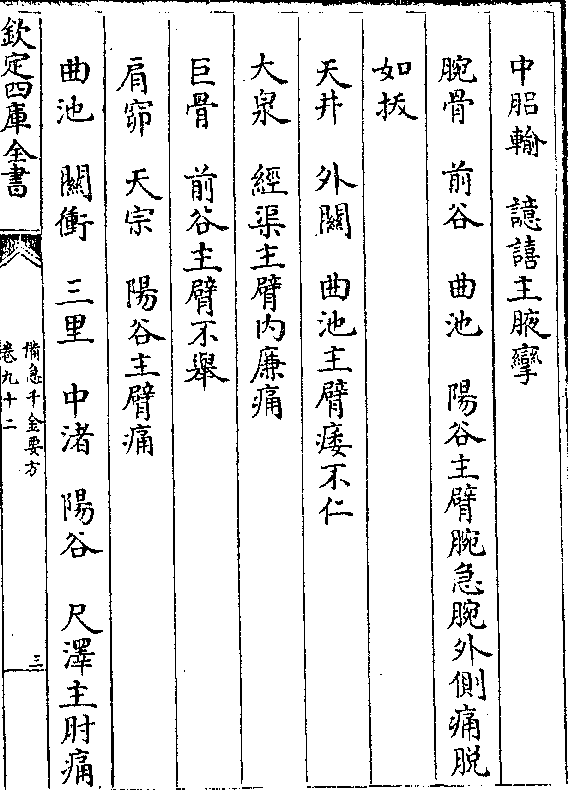 中膂輸　譩譆主腋攣
腕骨　前谷　曲池　陽谷主臂腕急腕外側痛脫
如拔
天井　外關　曲池主臂痿不仁
大泉　經渠主臂內廉痛
巨骨　前谷主臂不舉
肩窌　天宗　陽谷主臂痛
曲池　關衝　三里　中渚　陽谷　尺澤主肘痛
欽定四庫全書
備急千金要方
卷九十二
三